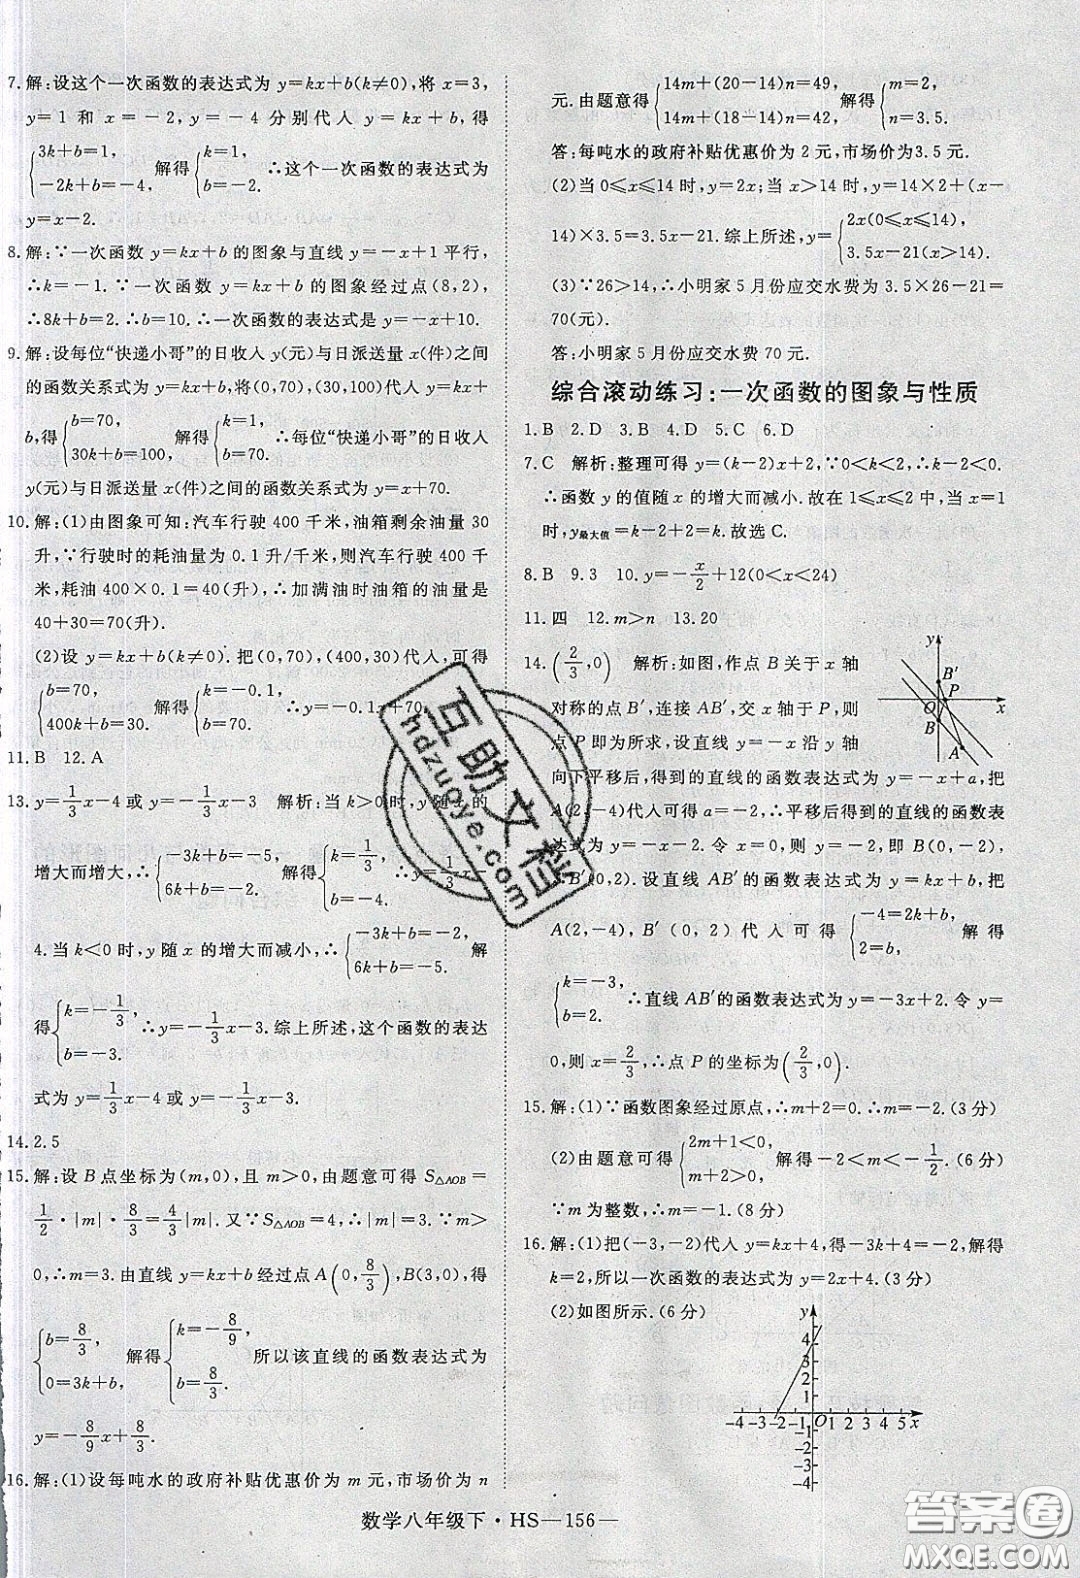 7.解:设这个一次函数的表达式为 y=kx+b(k≠0),将 x=3,
y=1 和 x=-2, y=-4 分别代入 y=kx+b,得
{3k+b=1, -2k+b=-4, 解得{k=1, b=-2. ∴这个一次函数的表达式为
y=x-2.
8.解:∵一次函数 y=kx+b 的图象与直线 y=-x+1 平行,
∴k=-1. ∵一次函数 y=kx+b 的图象经过点(8,2),
∴8k+b=2. ∴b=10. ∴一次函数的表达式是 y=-x+10.
9.解:设每位“快递小哥”的日收入 y(元)与日派送量 x(件)之间
的函数关系式为 y=kx+b,将(0,70),(30,100)代入 y=kx+
b,得{b=70, 30k+b=100, 解得{k=1, b=70. ∴每位“快递小哥”的日收入
y(元)与日派送量 x(件)之间的函数关系式为 y=x+70.
10.解:(1)由图象可知:汽车行驶 400 千米,油箱剩余油量 30
升,∵行驶时的耗油量为 0.1 升/千米,则汽车行驶 400 千
米,耗油 400×0.1=40(升). ∴加满油时油箱的油量是
40+30=70(升).
(2)设 y=kx+b(k≠0).把(0,70),(400,30)代入,可得
{b=70, 400k+b=30. 解得{k=-0.1, b=70. ∴y=-0.1x+70.
11.B 12.A
13.y=1/3x-4或 y=-1/3x-3 解析:当 k>0 时,y 随 x 的
增大而增大,∴{-3k+b=-5, 6k+b=-2. 解得{k=1/3, b=-4. ∴y=1/3x-
4.当 k<0 时,y 随 x 的增大而减小,∴{-3k+b=-2, 6k+b=-5. 解
得{k=-1/3, b=-3. ∴y=-1/3x-3.综上所述,这个函数的表达
式为 y=1/3x-4 或 y=-1/3x-3.
14.2.5
15.解:设 B 点坐标为(m,0),且 m>0,由题意可得 S△AOB=
1/2·|m|·8/3=4/3|m|.又∵S△AOB=4,∴|m|=3.∵m>
0,∴m=3.由直线 y=kx+b 经过点 A(0,8/3),B(3,0),得
{b=8/3, 0=3k+b, 解得{k=-8/9, b=8/3. 所以该直线的函数表达式为
y=-8/9x+8/3.
16.解:(1)设每吨水的政府补贴优惠价为 m 元,市场价为 n
元.由题意得{14m+(20-14)n=49, 14m+(18-14)n=42, 解得{m=2, n=3.5.
答:每吨水的政府补贴优惠价为 2 元,市场价为3.5 元.
(2)当 0≤x≤14 时,y=2x;当 x>14 时,y=14×2+(x-
14)×3.5=3.5x-21.综上所述,y={2x(0≤x≤14), 3.5x-21(x>14).
(3)∵26>14,∴小明家 5 月份应交水费为 3.5×26-21=
70(元).
答:小明家 5 月份应交水费 70 元.
综合滚动练习:一次函数的图象与性质
1.B 2.D 3.B 4.D 5.C 6.D
7.C 解析:整理可得 y=(k-2)x+2,∵0<k<2,∴k-2<0.
∴函数 y 的值随 x 的增大而减小.故在 1≤x≤2 中,当 x=1
时,y最大值=k-2+2=k.故选 C.
8.B 9.3 10.y=-x/2+12(0<x<24)
11.四 12.m>n 13.20
14.(2/3,0) 解析:如图,作点 B 关于 x 轴
对称的点 B′,连接 AB′,交 x轴于 P,则
点 P 即为所求,设直线 y=-x 沿 y 轴
y
B′
P
O
x
B
A
向下平移后,得到的直线的函数表达式为 y=-x+a,把
A(2,-4)代入可得 a=-2,∴平移后得到的直线的函数表
达式为 y=-x-2.令 x=0,则 y=-2,即 B(0,-2),
∴B′(0,2).设直线 AB′的函数表达式为 y=kx+b,把
A(2,-4),B′(0,2)代入可得{-4=2k+b, 2=b, 解得
{k=-3, b=2. ∴直线 AB′的函数表达式为 y=-3x+2.令 y=
0,则 x=2/3,∴点 P 的坐标为(2/3,0).
15.解:(1)∵函数图象经过原点,∴m+2=0. ∴m=-2.(3 分)
(2)由题意可得{2m+1<0, m+2>0. 解得-2<m<-1/2.(6 分)
∵m 为整数,∴m=-1.(8 分)
16.解:(1)把(-3,-2)代入 y=kx+4,得-3k+4=-2,解得
k=2,所以一次函数的表达式为 y=2x+4.(3 分)
(2)如图所示.(6 分)
y
4
3
2
1
-4 -3 -2 -1 O 1 2 3 4 5 x
-1
-2
-3
-4
数学八年级下·HS—156—
互助文档
hdzuoye.com
答案圈
MXQE.COM